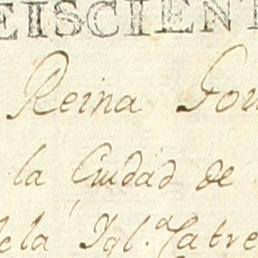 EISCIENT
Reina Gou
la Ciudad de
dela Ygl.ª Catre